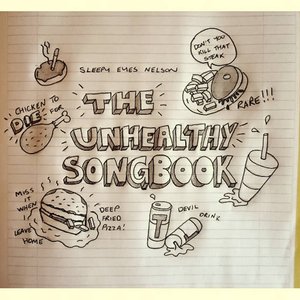 SLEEPY EYES NELSON
DON'T YOU
KILL THAT
STEAK
RARE!!!
CHICKEN TO
DIE
FOR
THE
UNHEALTHY
SONGBOOK
MISS
IT
WHEN
I
LEAVE
HOME
DEEP
FRIED
PIZZA!
DEVIL
DRINK
T